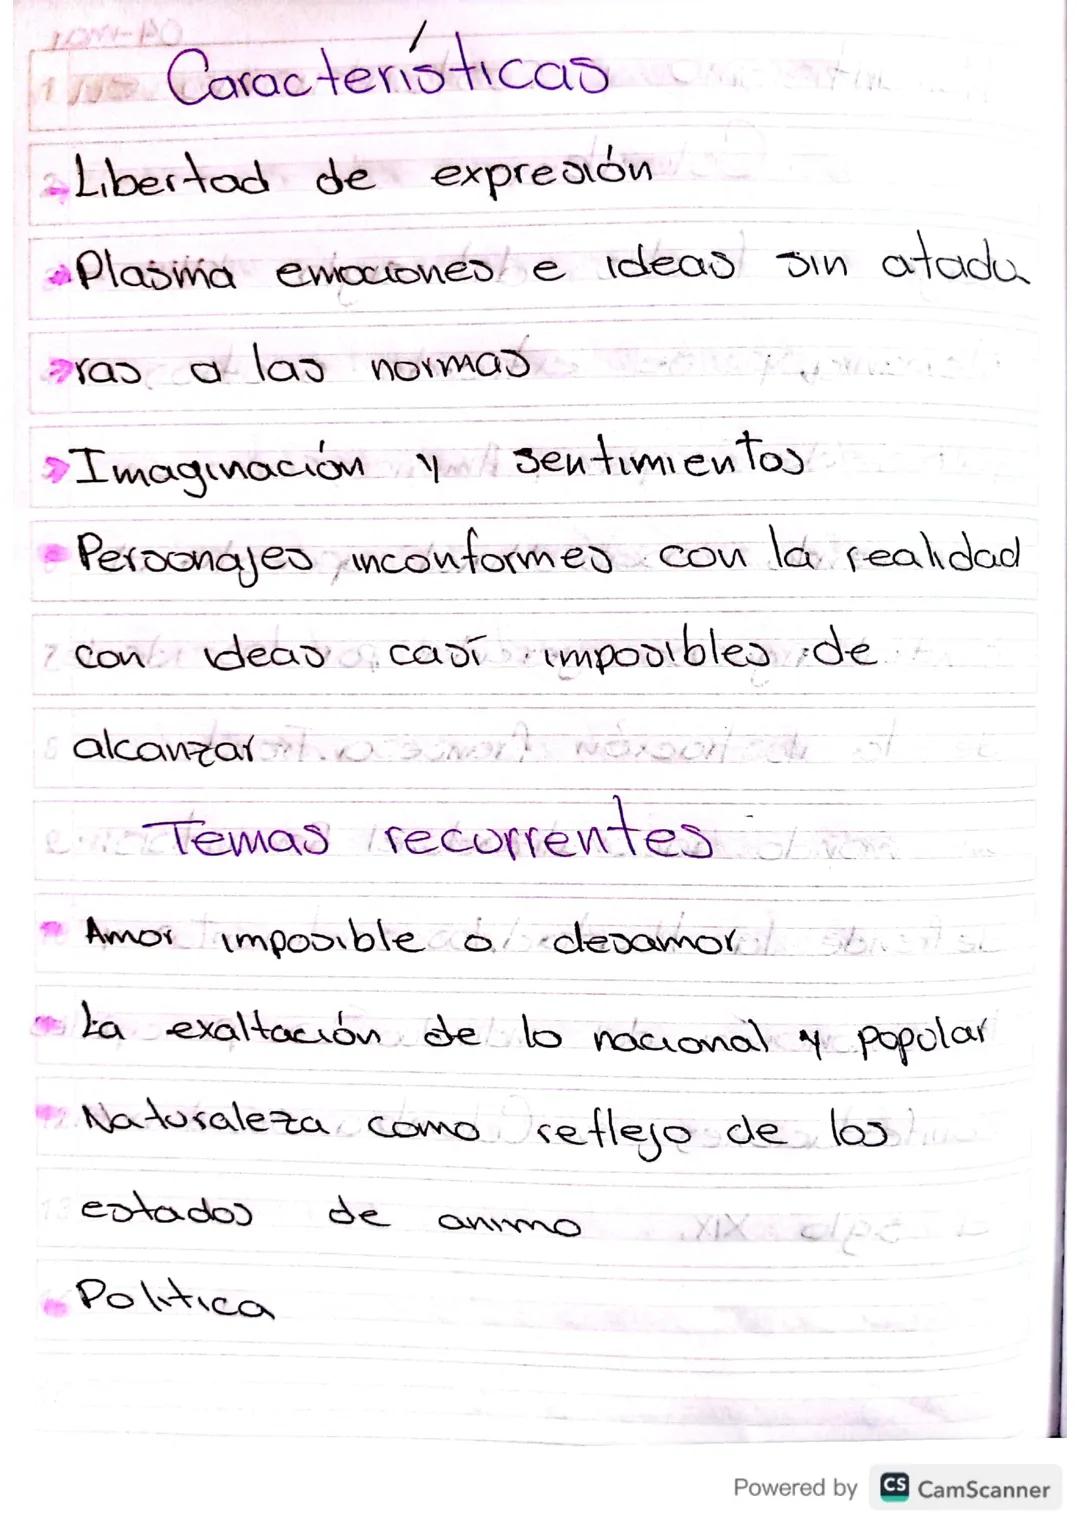 Características
Libertad de expresión
Plasma emociones e ideas sin atadu
ras a las normas
Imaginación y sentimientos
Personajes inconformes con la realidad
con ideas casí imposibles de
alcanzar
Temas recorrentes
Amor imposible o desamor
La exaltación de lo nacional y popular
Naturaleza como reflejo de los
estados de animo
Politica
Powered by CS CamScanner